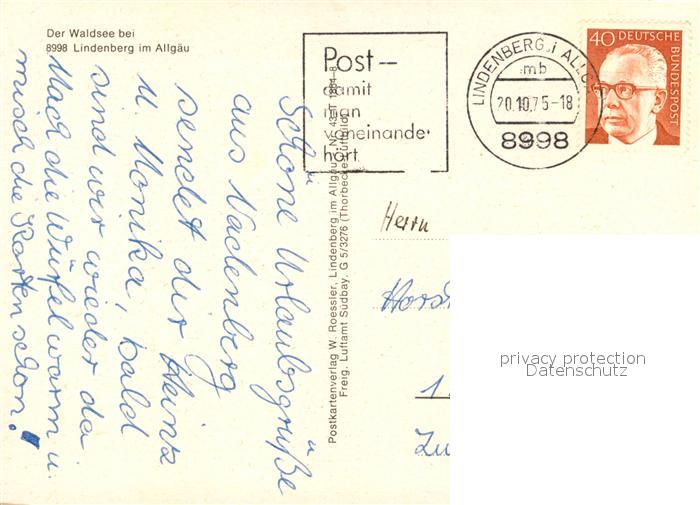 Der Waldsee bei
8998 Lindenberg im Allgäu
Post –
damit
man
voneinander
hört
LINDENBERG i. ALLG
mb
20.10.75-18
8998
40 DEUTSCHE
BUNDESPOST
Schöne Urlaubsgrüße
aus Nadenberg
sendet dir Heinz
u. Monika, bald
sind wir wieder da
Mach die Würfel warm u.
misch die Karten schon!
Postkartenverlag W. Roessler, Lindenberg im Allgäu
Freig. Luftamt Südbay. G 5/3276 (Thorbecke Luftbild)
Herrn
Horst
1
Zu
privacy protection
Datenschutz